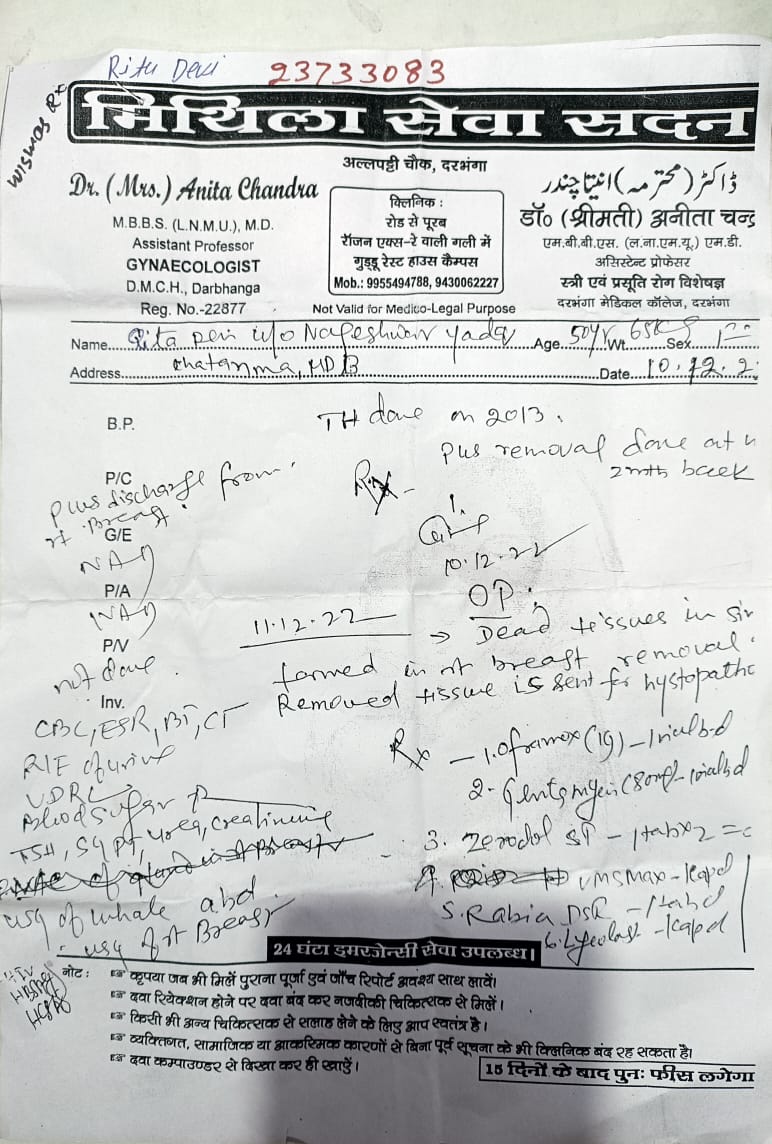 Ritu Devi 23733083
मिथिला सेवा सदन
अल्लपट्टी चौक, दरभंगा
Dr. (Mrs.) Anita Chandra
M.B.B.S. (L.N.M.U.), M.D.
Assistant Professor
GYNAECOLOGIST
D.M.C.H., Darbhanga
Reg. No.-22877
क्लिनिक :
रोड से पूरब
रॉजन एक्स-रे वाली गली में
गुड्डू रेस्ट हाउस कैम्पस
Mob.: 9955494788, 9430062227
Not Valid for Medico-Legal Purpose
ڈاکٹر (محترمہ) انیتا چندر
डॉ० (श्रीमती) अनीता चन्द्
एम.बी.बी.एस. (ल.ना.एम.यू.) एम.डी.
असिस्टेन्ट प्रोफेसर
स्त्री एवं प्रसूति रोग विशेषज्ञ
दरभंगा मेडिकल कॉलेज, दरभंगा
Name Rita Devi w/o Nageshwar yadav Age 50yr Wt. 65K Sex
Address Date 10.12.2
B.P.
TH done on 2013.
pus removal done at
2mth back
P/C
Pus discharge from
rt Breast.
Rx
G/E
NAD
10.12.22
P/A
NAD
OP.
P/V
not done.
11.12.22 → Dead tissues in
formed in rt breast removal.
Removed tissue is sent for hystopatho
Inv.
CBC, ESR, BT, CT
R/E of urine
VDRL
Blood sugar R
TSH, SGPT, urea, creatinine
usg of whole abd
usg of rt Breast.
Rx - 1. Oframax (1g) - 1vial b-d
2. Gentamycin (80mg) - 1vial bd
3. Zerodol SP - 1tab x 2
4. VMSMax - 1capd
5. Rabia DSR - 1tabd
6. - 1capd
24 घंटा इमरजेन्सी सेवा उपलब्ध।
नोट :
☞ कृपया जब भी मिलें पुराना पूर्जा एवं जाँच रिपोर्ट अवश्य साथ लावें।
☞ दवा रियेक्शन होने पर दवा बंद कर नजदीकी चिकित्सक से मिलें।
☞ किसी भी अन्य चिकित्सक से सलाह लेने के लिए आप स्वतंत्र है।
☞ व्यक्तिगत, सामाजिक या आकस्मिक कारणों से बिना पूर्व सूचना के भी क्लिनिक बंद रह सकता है।
☞ दवा कम्पाउण्डर से दिखा कर ही खाऐं।
15 दिनों के बाद पुनः फीस लगेगा